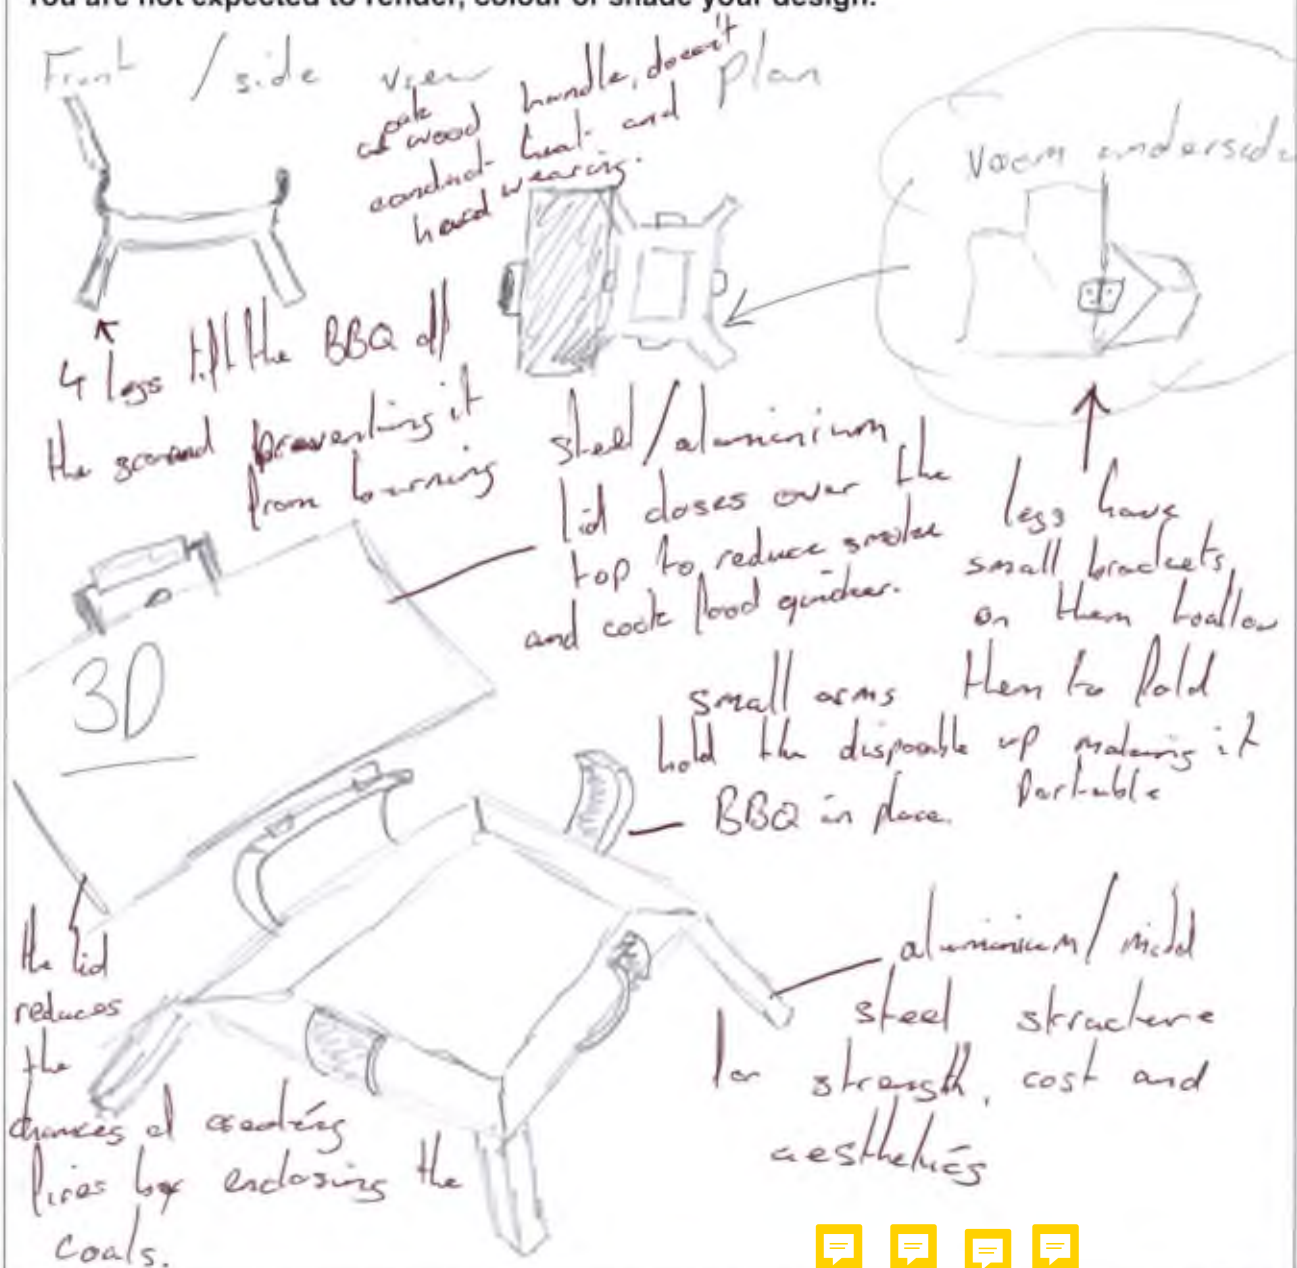 You are not expected to render, colour or shade your design.
Front / side view
Plan
oak
wood handle, doesn't
conduct heat and
hard wearing.
View underside
4 legs lift the BBQ off
the ground preventing it
from burning
steel/aluminium
lid closes over the
top to reduce smoke
and cook food quicker.
legs have
small brackets
on them to allow
them to fold
up making it
portable
3D
small arms
hold the disposable
BBQ in place.
the lid
reduces
the
chances of creating
fires by enclosing the
coals.
aluminium/mild
steel structure
for strength, cost and
aesthetics